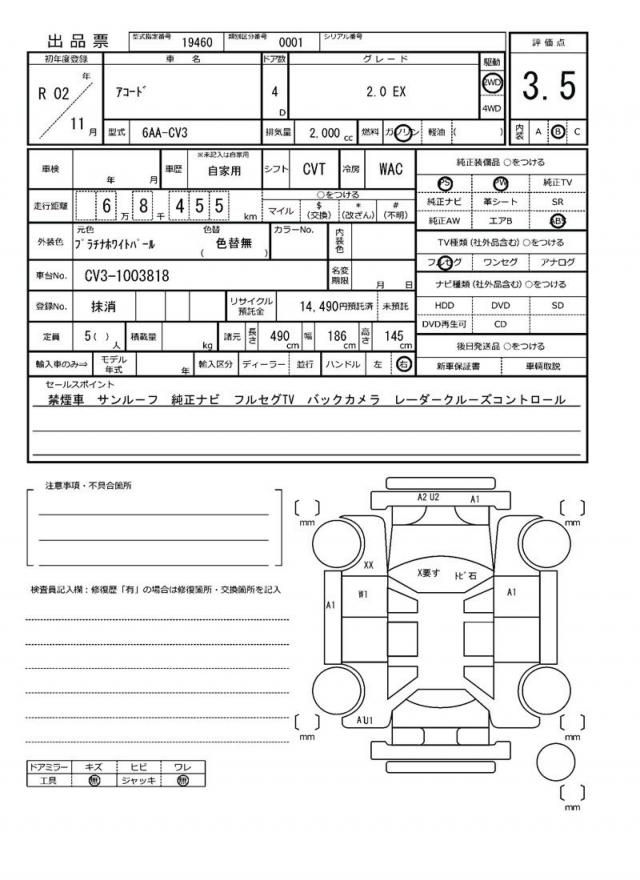 出品票 型式指定番号 19460 類別区分番号 0001 シリアル番号
評価点
3.5
内装 A B C
初年度登録 車名 ドア数 グレード 駆動
R 02 年 11 月 アコード 4 D 2.0 EX 2WD 4WD
型式 6AA-CV3 排気量 2,000 cc 燃料 ガソリン 軽油 ( )
車検 年 月 車歴 ※未記入は自家用 自家用 シフト CVT 冷房 WAC
走行距離 6 万 8 千 4 5 5 km ○をつける
マイル $ (交換) * (改ざん) # (不明)
外装色 元色 プラチナホワイトパール 色替 色替無 ( ) カラーNo. 内装色
車台No. CV3-1003818 名変期限 月 日
登録No. 抹消 リサイクル預託金 14,490円預託済 未預託
定員 5( ) 人 積載量 kg 諸元 長さ 490 cm 幅 186 cm 高さ 145 cm
輸入車のみ⇒ モデル年式 年 輸入区分 ディーラー 並行 ハンドル 左 右
純正装備品 ○をつける
PS PW 純正TV
純正ナビ 革シート SR
純正AW エアB ABS
TV種類(社外品含む) ○をつける
フルセグ ワンセグ アナログ
ナビ種類(社外品含む) ○をつける
HDD DVD SD
DVD再生可 CD
後日発送品 ○をつける
新車保証書 車輌取説
セールスポイント
禁煙車 サンルーフ 純正ナビ フルセグTV バックカメラ レーダークルーズコントロール
注意事項・不具合箇所
検査員記入欄:修復歴「有」の場合は修復箇所・交換箇所を記入
ドアミラー キズ ヒビ ワレ
工具 無 ジャッキ 無
A2 U2 A1
[ ] mm [ ] mm
XX X要す トビ石
A1 W1 A1
AU1
[ ] mm [ ] mm
[ ] mm